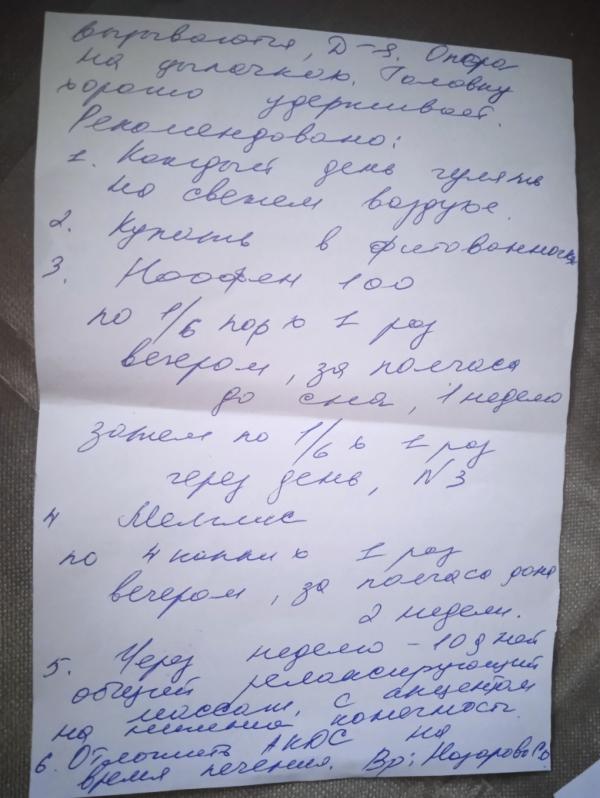 вызываются, D=S. Опора
на цыпочках. Головку
хорошо удерживает.
Рекомендовано:
1. Каждый день гулять
на свежем воздухе.
2. Купать в фитованночках
3. Ноофен 100
по 1/6 пор х 1 раз
вечером, за полчаса
до сна, 1 неделю
затем по 1/6 х 1 раз
через день, N3
4 Мелглис
по 4 капли х 1 раз
вечером, за полчаса до сна
2 недели.
5. Через неделю - 10 дней
общий релаксирующий
массаж, с акцентом
на нижние конечност.
6. Отложить АКДС на
время лечения. Вр: Назарова